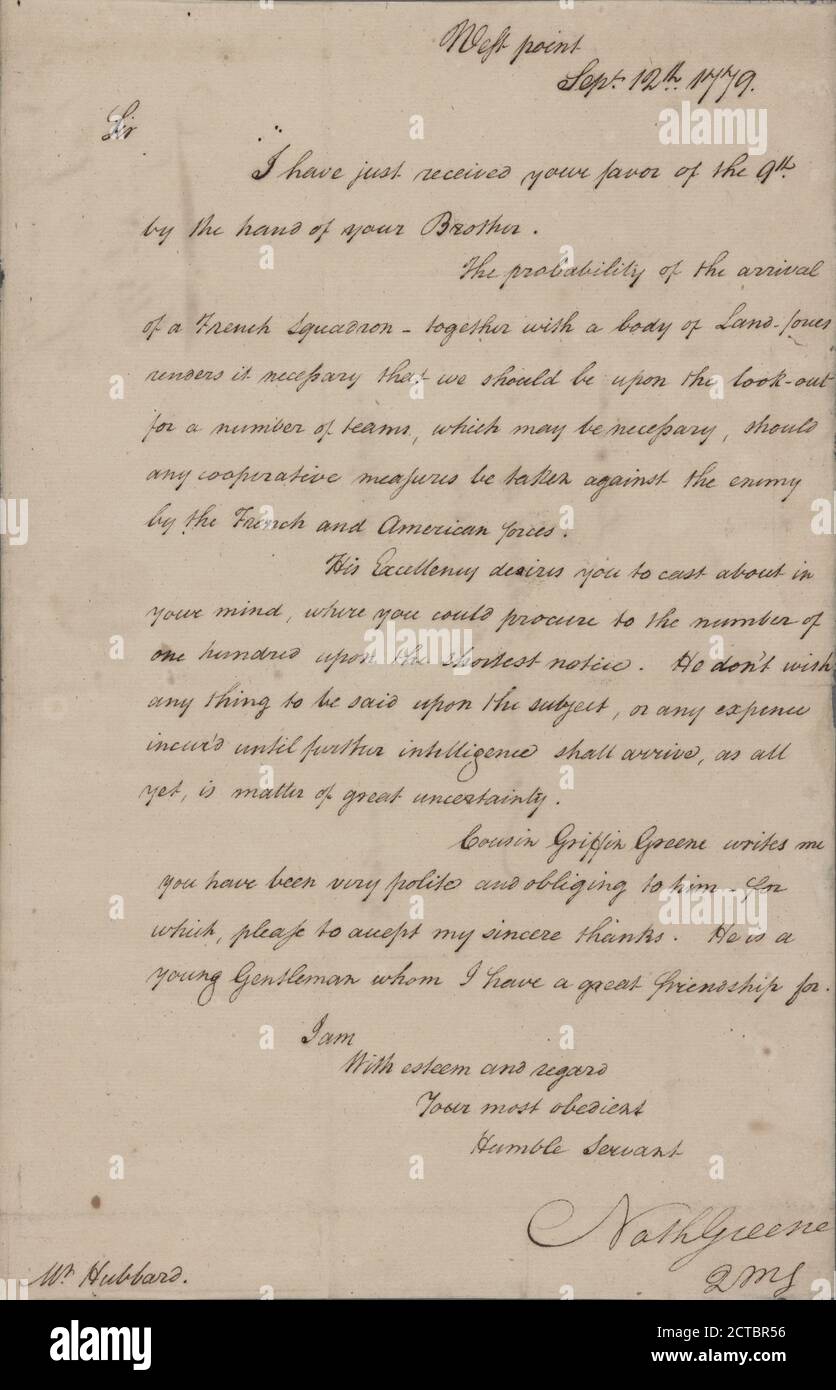 West point
Sept. 12th. 1779.
Sir
I have just received your favor of the 9th.
by the hand of your Brother.
The probability of the arrival
of a French Squadron - together with a body of Land-forces
renders it necessary that we should be upon the look-out
for a number of teams, which may be necessary, should
any cooperative measures be taken against the enemy
by the French and American forces.
His Excellency desires you to cast about in
your mind, where you could procure to the number of
one hundred upon the shortest notice. He don't wish
any thing to be said upon the subject, or any expence
incur'd until further intelligence shall arrive, as all
yet, is matter of great uncertainty.
Cousin Griffin Greene writes me
you have been very polite and obliging to him - for
which, please to accept my sincere thanks. He is a
young Gentleman whom I have a great friendship for.
I am
With esteem and regard
Your most obedient
Humble Servant
Nath Greene
QMG
Mr. Hubbard.
alamy
Image ID: 2CTBR56
www.alamy.com